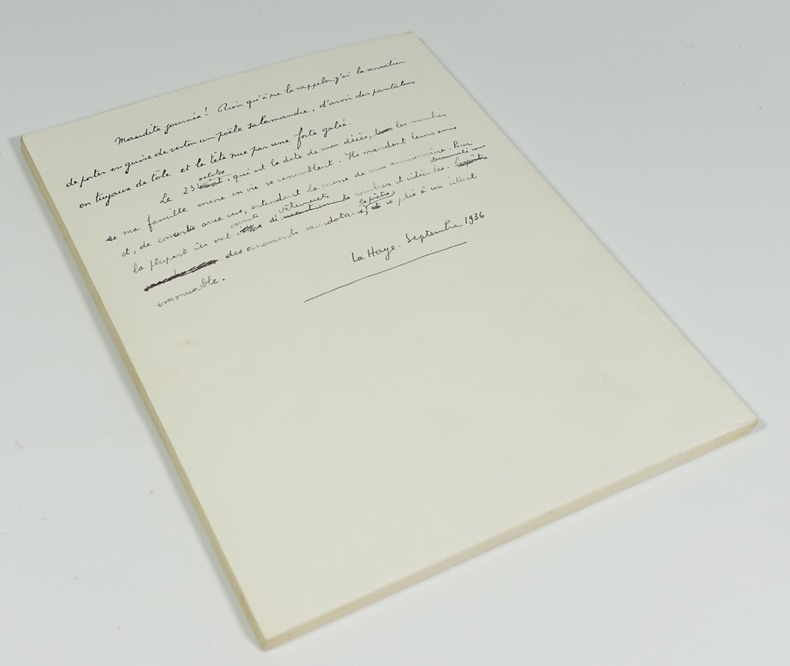 Maudite journée ! Rien qu'à me la rappeler j'ai la sensation
de porter en guise de veston un poële salamandre, d'avoir des pantalons
en tuyaux de tôle et la tête nue par une forte gelée.
Le 23 octobre, qui est la date de mon décès, les membres
de ma famille encore en vie se rassemblent. Ils mandent leurs amis
et, de concert avec eux, entendent la messe de mon anniversaire. Pour
la plupart ils sont couverts de vêtements sombres et ridicules.
des ornements sacerdotaux, le prêtre se plie à un rituel
immuable.
La Haye. Septembre 1936